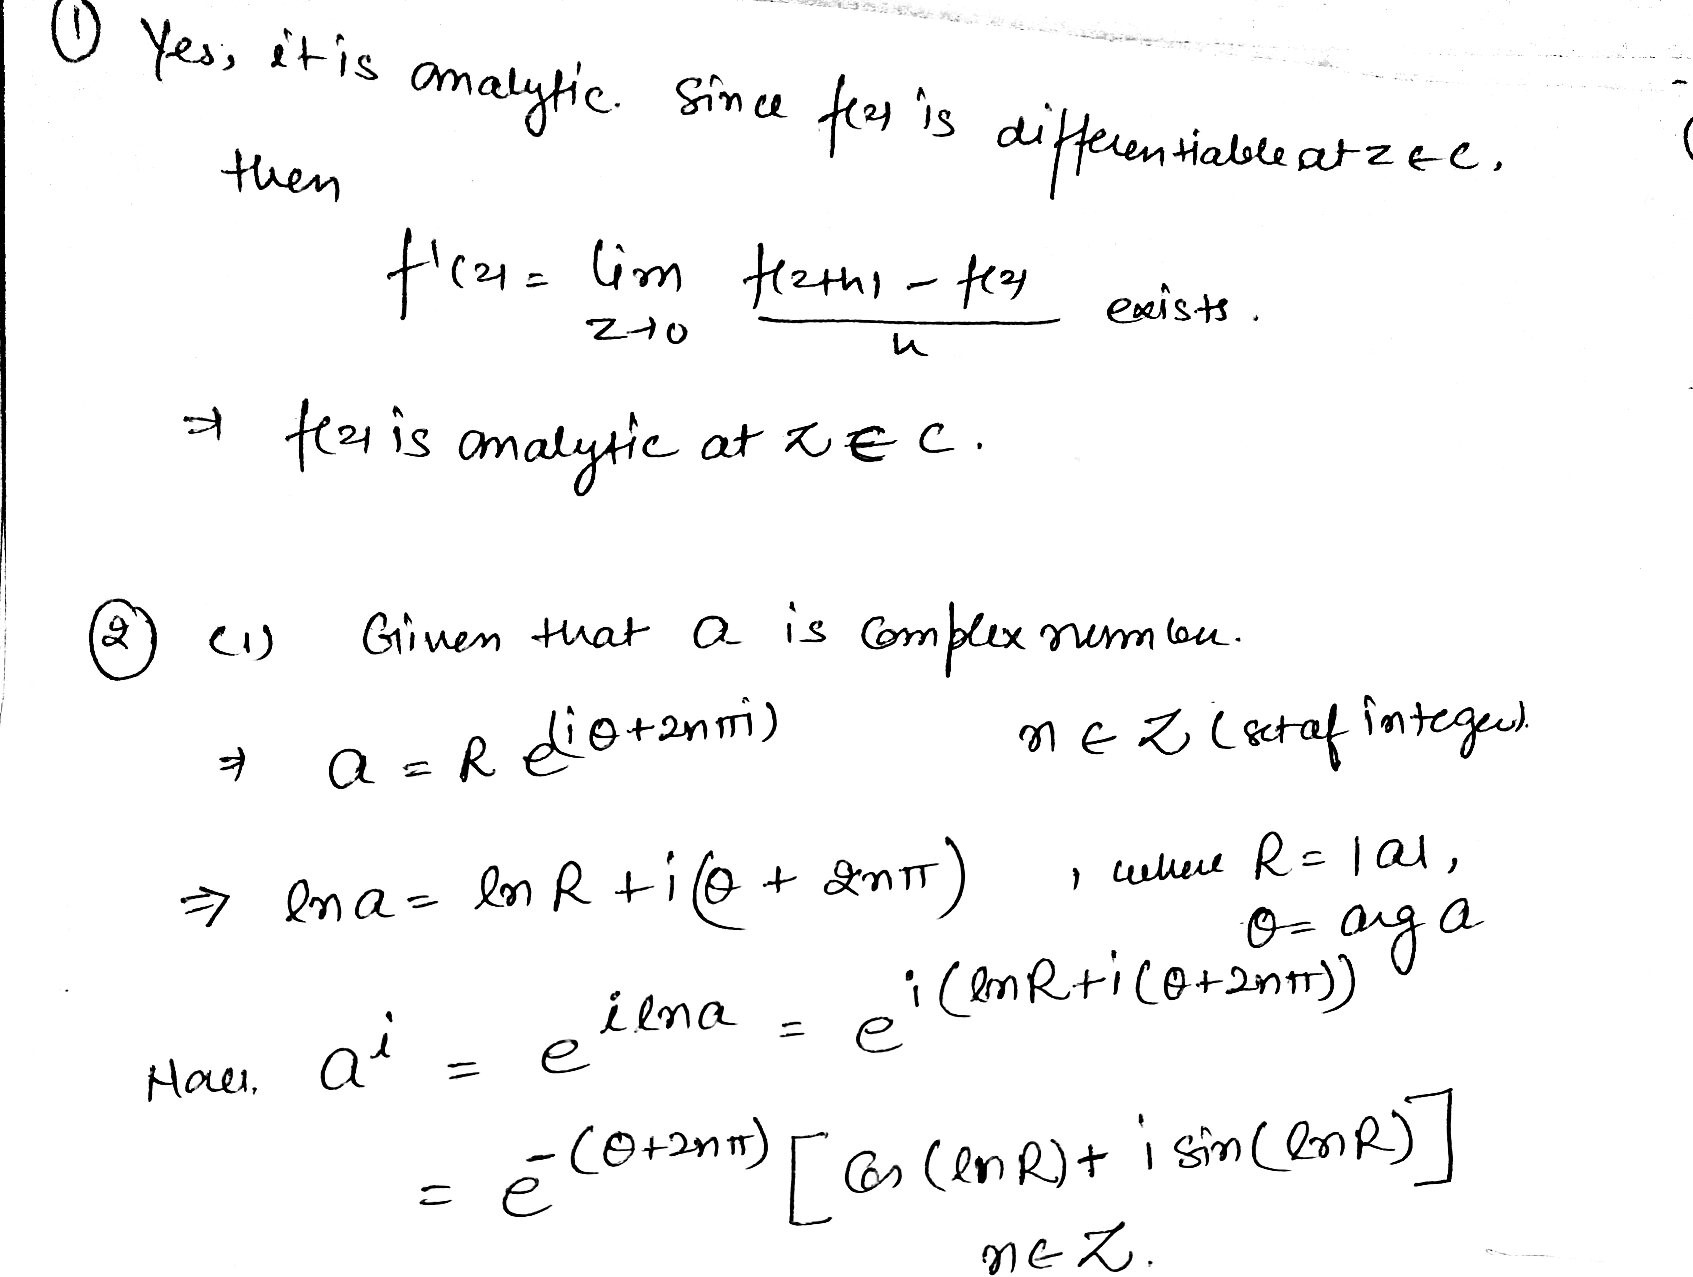 ① Yes, it is analytic. Since f(z) is differentiable at z ∈ C,
then
f'(z) = lim z→0 f(z+h) - f(z) / h exists.
⇒ f(z) is analytic at z ∈ C.
② (1) Given that a is complex number.
⇒ a = R e^(iθ+2nπi) n ∈ Z (set of integer).
⇒ ln a = ln R + i(θ + 2nπ) , where R = |a|,
θ = arg a
Now, a^i = e^{i ln a} = e^{i(ln R + i(θ+2nπ))}
= e^{-(θ+2nπ)} [Cos (ln R) + i sin (ln R)]
n ∈ Z.